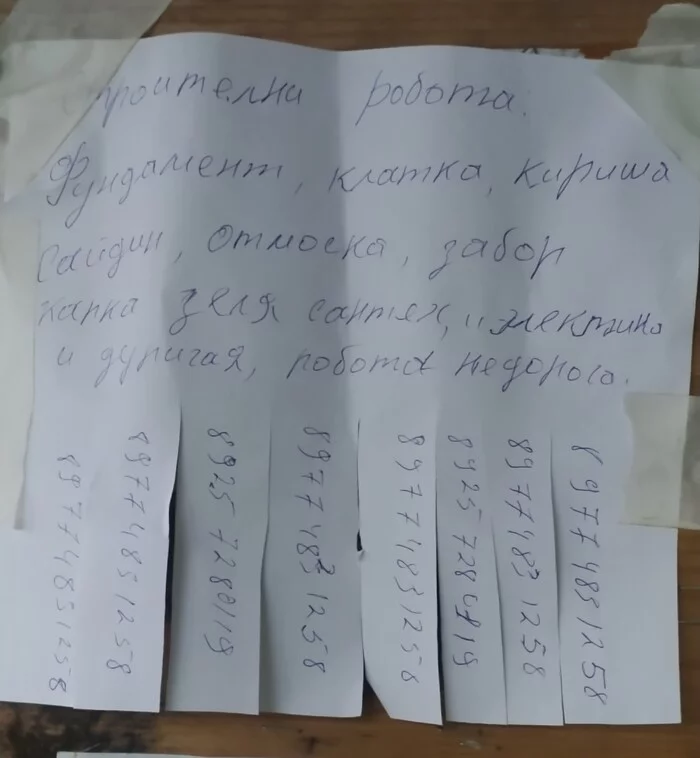 троителни робота.
Фундамент, клатка, кириша
Сайдин, отмоска, забор
капка зеля сантех, и электико
и дуригая, робота недорого.
8977 483 1258
8977 483 1258
8925 728
8977 483 1258
8977 483 1258
8925 728
8977 483 1258
8977 483 1258